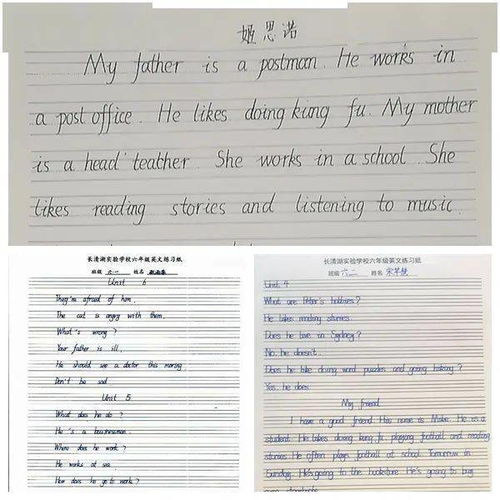 姬思诺
My father is a postman. He works in
a post office. He likes doing kung fu. My mother
is a head teather. She works in a school. She
likes reading stories and listening to music.
长清湖实验学校六年级英文练习纸
班级 六一 姓名
Unit 6
They're afraid of him.
The cat is angry with them.
What's wrong?
Your father is ill.
He should see a doctor this morning.
Don't be sad.
Unit 5
What does he do?
He is a businessman.
Where does he work?
He works at sea.
How does he go to work?
长清湖实验学校六年级英文练习纸
班级 六二 姓名
Unit 4
What are Peter's hobbies?
He likes reading stories.
Does he live in Sydney?
No, he doesn't.
Does he like doing word puzzles and going hiking?
Yes, he does.
My friend
I have a good friend. His name is Mike. He is a
student. He likes doing kung fu, playing football and reading
stories. He often plays football at school. Tomorrow is
Sunday. He's going to the bookstore. He's going to buy